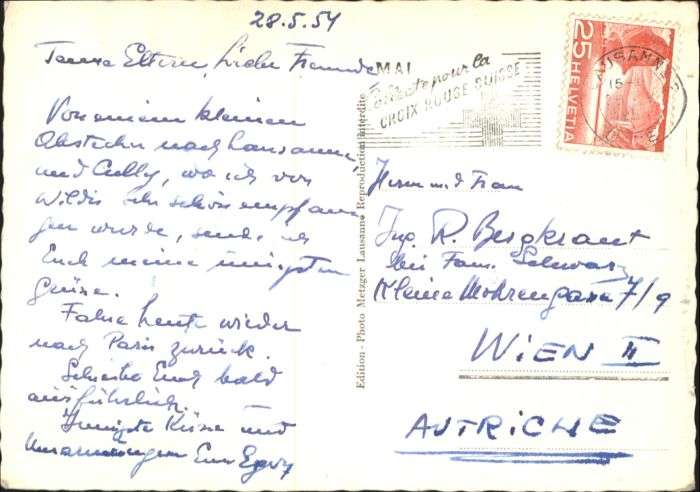 28.5.54
Teure Eltern, liebe Freunde
Von meinem kleinen
Abstecher nach Lausanne
und Cully, wo ich von
Wildis sehr schön empfan
gen wurde, sende ich
Euch meine innigsten
Grüsse.
Fahre heute wieder
nach Paris zurück.
Schreibe Euch bald
ausführlich.
Innigste Küsse und
Umarmungen Euer
Edition - Photo Metzger Lausanne Reproduction interdite
MAI
Collecte pour la
CROIX ROUGE SUISSE
LAUSANNE
15
25
HELVETIA
Herrn und Frau
Ing. R. Bergkraut
bei Fam. Schwarz
Kleine Mohrengasse 7/9
WIEN II
AUTRICHE